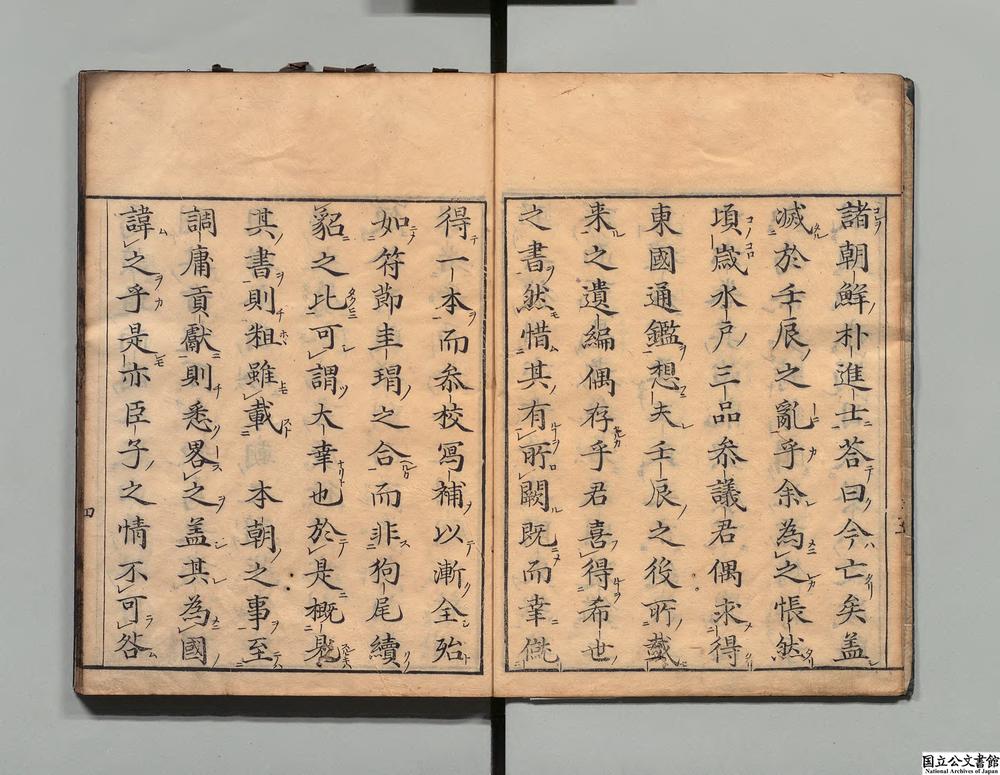 諸朝鮮朴進士答曰今亡矣盖
滅於壬辰之亂乎余為之悵然
頃歳水戸三品叅議君偶求得
東國通鑑想夫壬辰之後所載
来之遺編偶存乎君喜得希世
之書然惜其有所闕既而幸僦
得一本而叅校寫補以漸全殆
如符節圭瑁之合而非狗尾續
貂之比可謂大幸也於是概見
其書則粗雖載 本朝之事至
調庸貢獻則悉畧之盖其為國
諱之乎是亦臣子之情不可咎
四
国立公文書館
National Archives of Japan